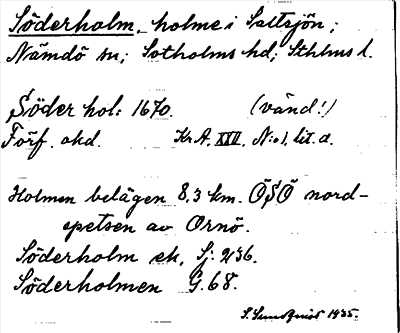 Söderholm, holme i Saltsjön;
Nämdö sn; Sotholms hd; Sthlms l.
Söder hol: 1670. (vänd!)
Förf. okd. Kr A. XXII, N:o 1. lit. a.
Holmen belägen 8,3 km. ÖSÖ nord-
spetsen av Ornö.
Söderholm ek, Sj: 236.
Söderholmen G. 68.
S. Sundquist 1935.